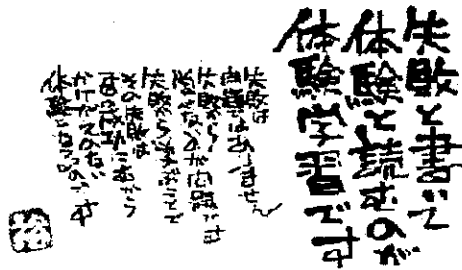 失敗と書いて
体験と読むのが
体験学習です
失敗は
問題はありません
失敗から
学ばないのが問題です
失敗から学ぶことで
その失敗は
次の成功にむかう
かけがえのない
体験になるのです